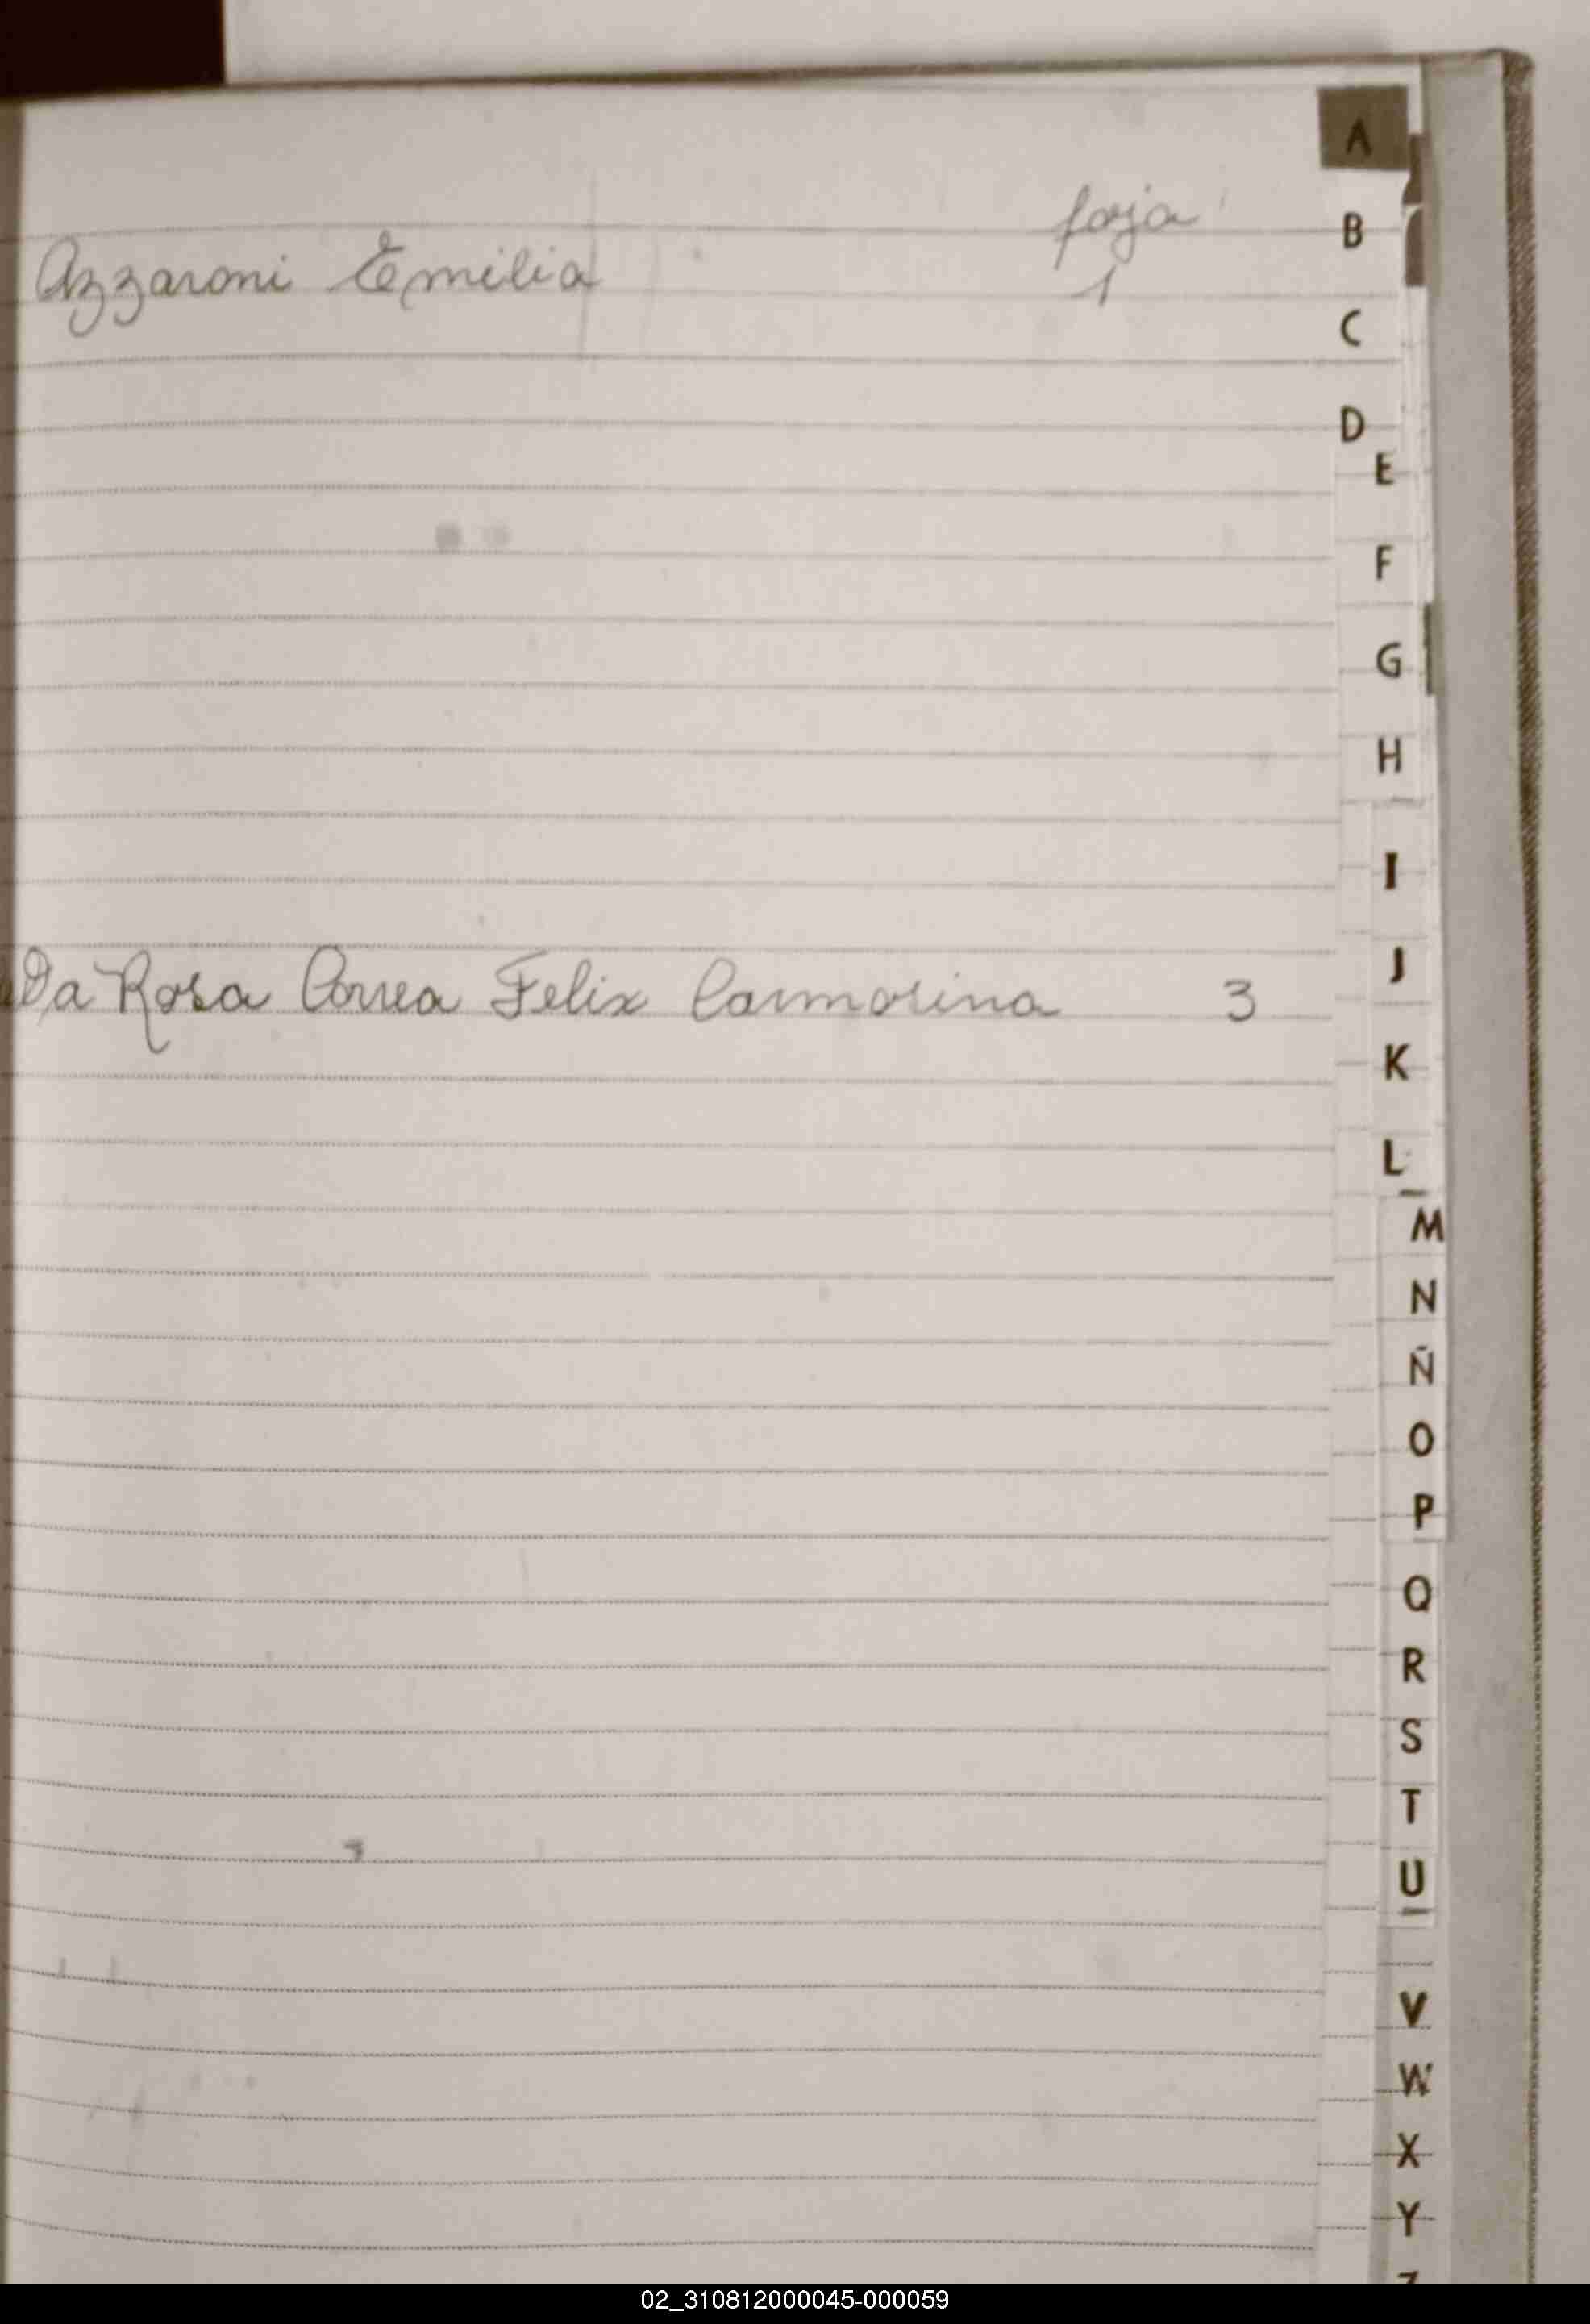 A
foja
B
Azzaroni Emilia 1
C
D
E
F
G
H
I
J
Da Rosa Correa Felix Carmosina 3
K
L
M
N
Ñ
O
P
Q
R
S
T
U
V
W
X
Y
02_310812000045-000059